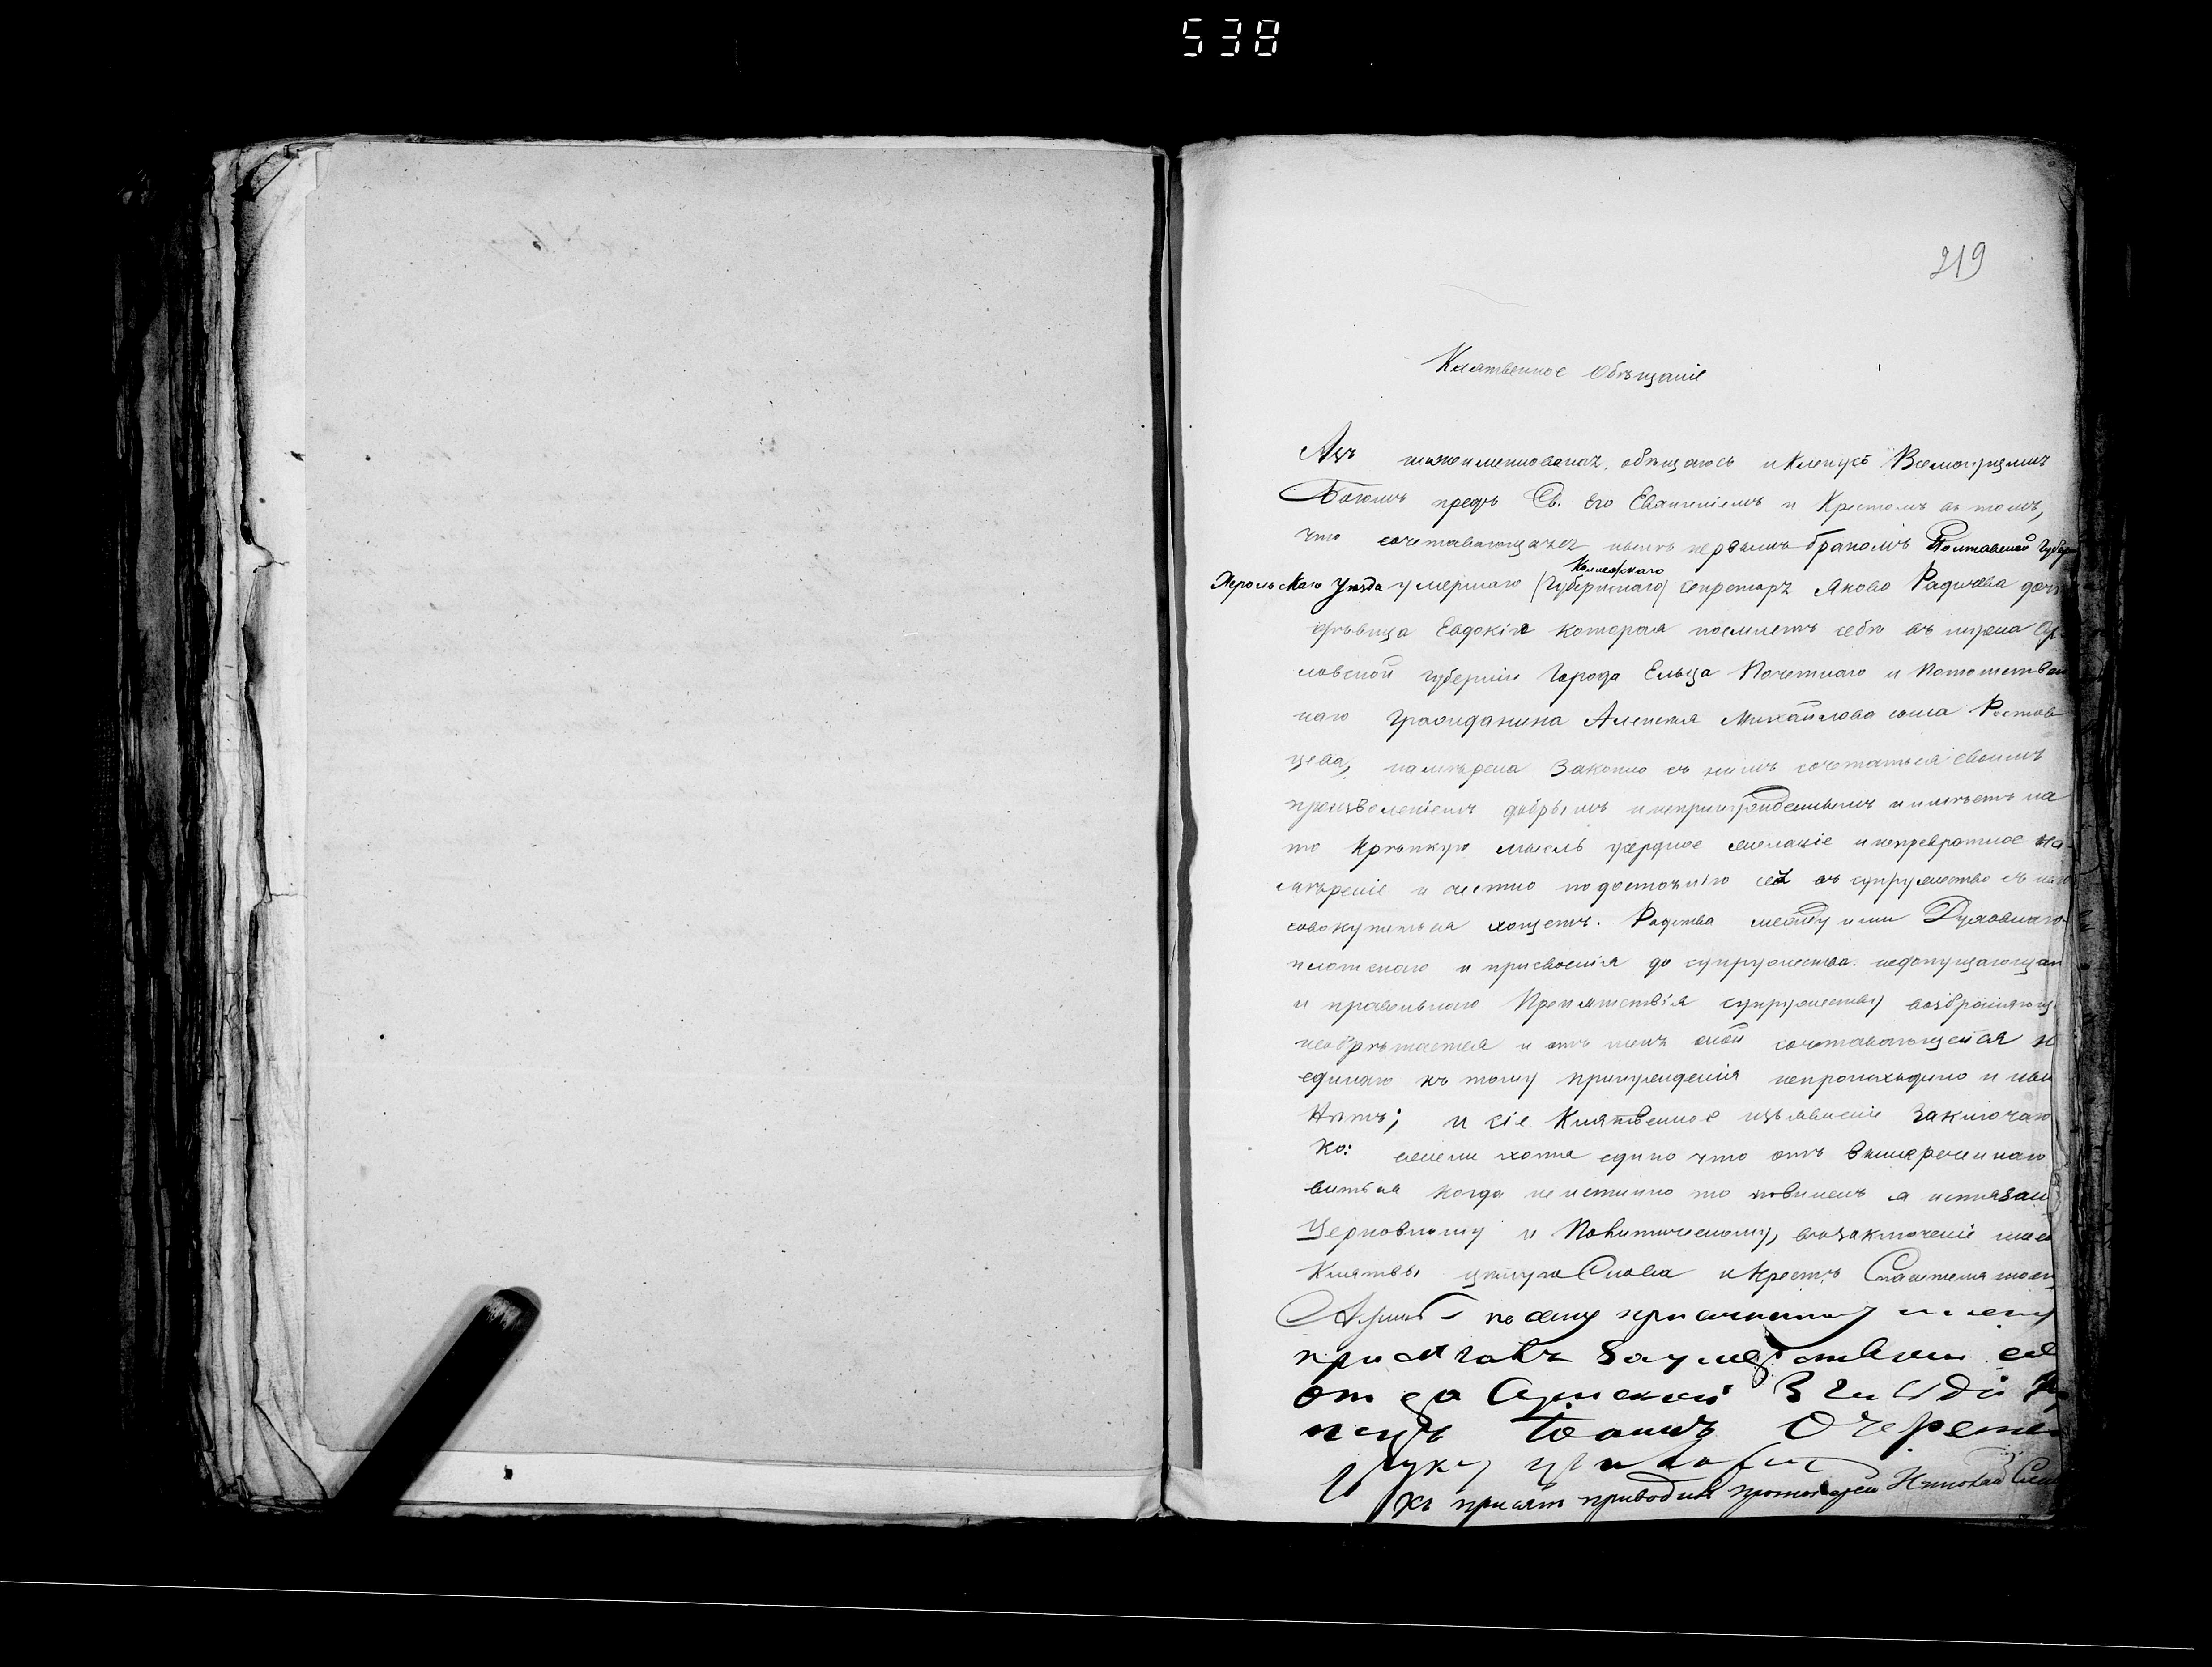 538
219
Клятвенное Обѣщаніе
Азъ нижеименованная, обѣщаюсь и Кленусь Всемогущимъ
Богомъ предъ Св. Его Евангеліемъ и Крестомъ въ томъ,
что сочетавающаяся нынѣ первымъ бракомъ Полтавской Губер
Коллежскаго
Хорольскаго Уѣзда умершаго (Губернскаго) Секретаря Якова Радичева дочь
дѣвица Евдокія которая поемлетъ себѣ въ мужа Ор
ловской губерніи Города Ельца Почетнаго и Потомствен
наго гражданина Алексѣя Михайлова сына Ростов
цева, намѣрена Законно съ нимъ сочетаться своимъ
произволеніемъ добрымъ и непринужденнымъ и имѣетъ на
то Крѣпкую мысль усердное желаніе и непревратное на
мѣреніе и честно по достоянію се въ супружество съ нимъ
совокупиться хощетъ. Родства между ими Духовнаго
плотскаго и присвоенія до супружества недопущающая
и правильнаго Препятствія супружеству возбраняющ
необрѣтается и отъ оной сочетавающейся н
единаго къ тому принужденія непроисходило и нын
Нѣтъ; и сіе Клятвенное изъявленіе Заключаю
Ко: ежели хотя едино что отъ вышереченнаго
виться когда неистинно то повиненъ я истязан
Церковному и Политическому, въ заключеніе моей
Клятвы цѣлую Слова и Крестъ Спасителя моего
Аминь по сему
отца Сумской 3 гильдіи Ку
пецъ Іоаннъ
руку приложилъ
Къ присягѣ приводилъ протоіерей Николай